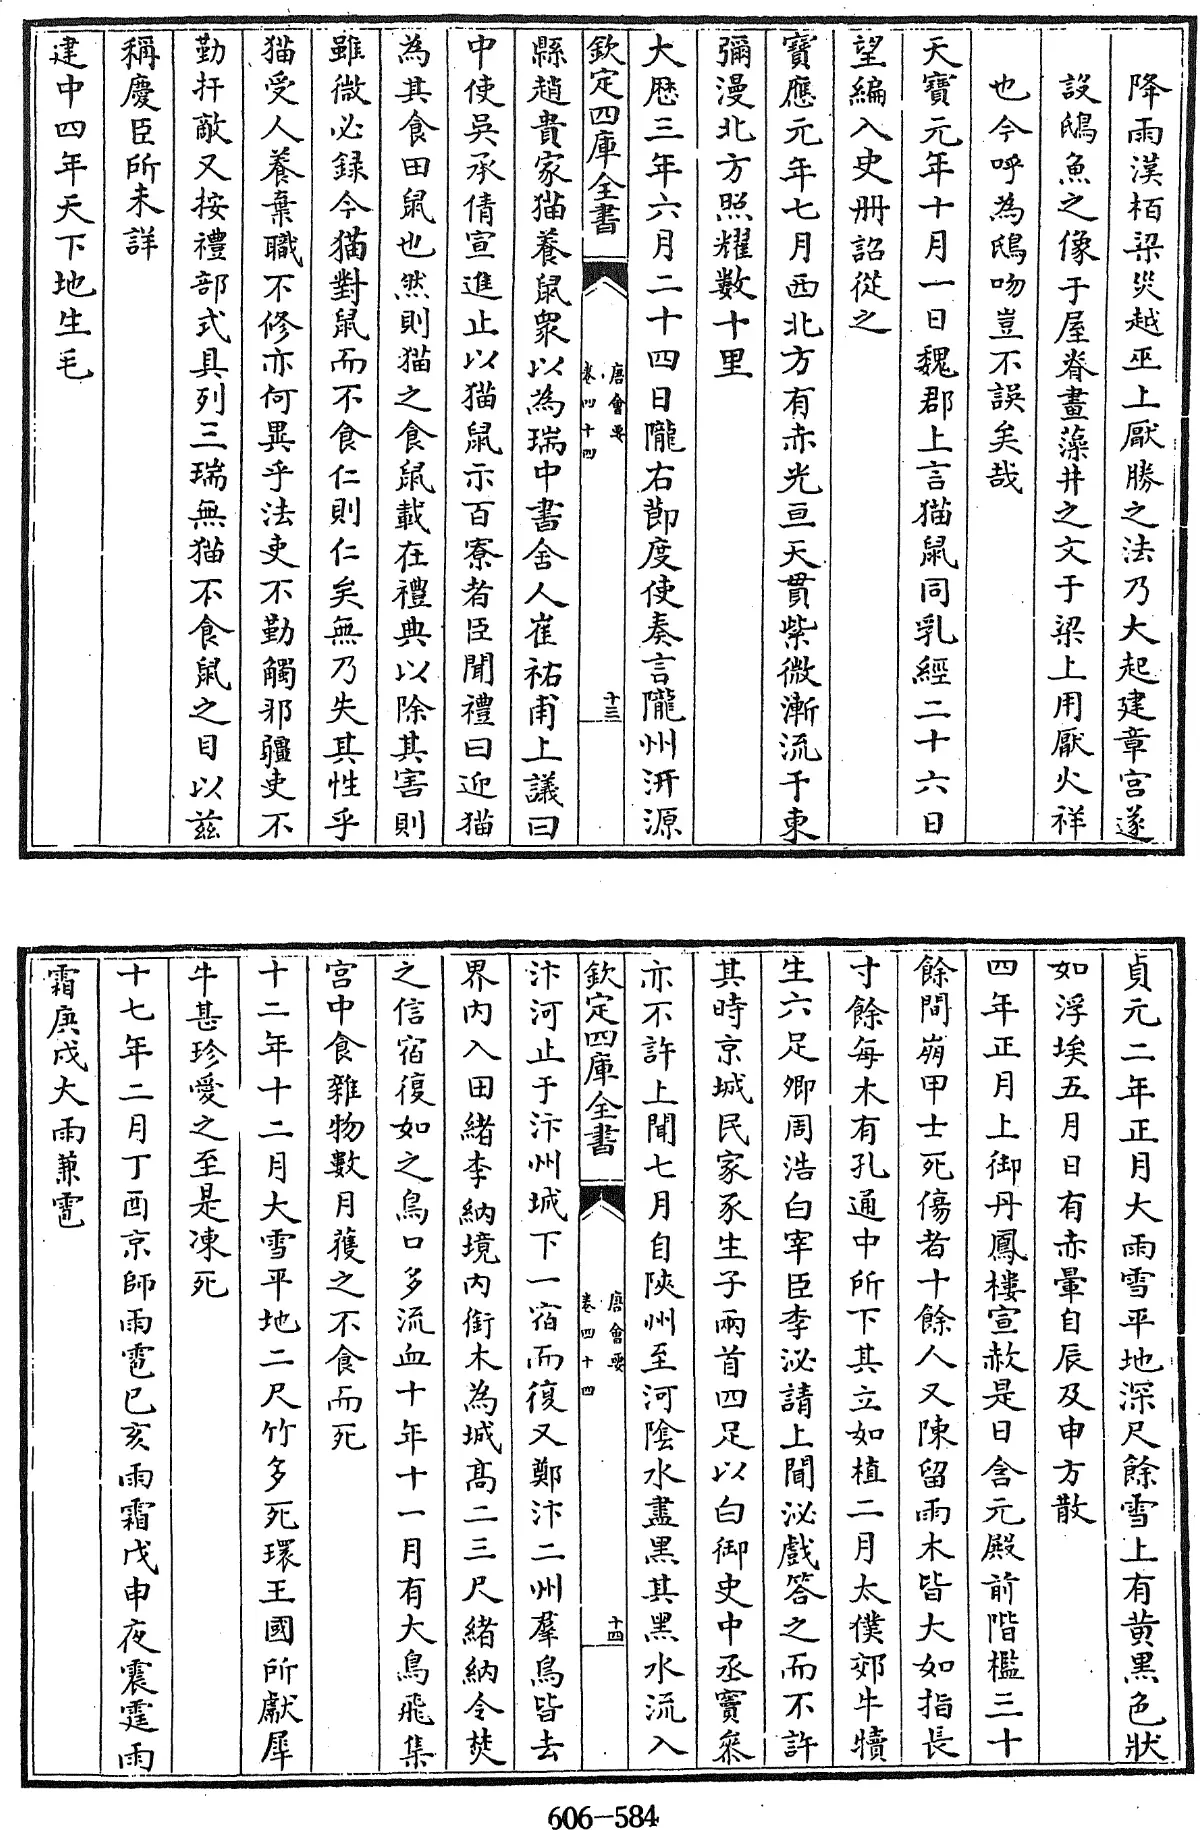 降雨漢栢梁災越巫上厭勝之法乃大起建章宫遂
設鴟魚之像于屋脊畫藻井之文于梁上用厭火祥
也今呼為鴟吻豈不誤矣哉
天寶元年十月一日魏郡上言猫鼠同乳經二十六日
望編入史冊詔從之
寶應元年七月西北方有赤光亘天貫紫微漸流于東
彌漫北方照耀數十里
大厯三年六月二十四日隴右節度使奏言隴州汧源
欽定四庫全書
唐會要
卷四十四
十三
縣趙貴家猫養鼠衆以為瑞中書舍人崔祐甫上議曰
中使吳承倩宣進止以猫鼠示百寮者臣聞禮曰迎猫
為其食田鼠也然則猫之食鼠載在禮典以除其害則
雖微必録今猫對鼠而不食仁則仁矣無乃失其性乎
猫受人養棄職不修亦何異乎法吏不勤觸邪疆吏不
勤扞敵又按禮部式具列三瑞無猫不食鼠之目以兹
稱慶臣所未詳
建中四年天下地生毛
貞元二年正月大雨雪平地深尺餘雪上有黄黑色狀
如浮埃五月日有赤暈自辰及申方散
四年正月上御丹鳳樓宣赦是日含元殿前階檻三十
餘間崩甲士死傷者十餘人又陳留雨木皆大如指長
寸餘每木有孔通中所下其立如植二月太僕郊牛犢
生六足卿周浩白宰臣李泌請上聞泌戲答之而不許
其時京城民家豕生子兩首四足以白御史中丞竇參
亦不許上聞七月自陜州至河陰水盡黑其黑水流入
欽定四庫全書
唐會要
卷四十四
十四
汴河止于汴州城下一宿而復又鄭汴二州羣鳥皆去
界内入田緒李納境内銜木為城高二三尺緒納令焚
之信宿復如之鳥口多流血十年十一月有大鳥飛集
宫中食雜物數月獲之不食而死
十二年十二月大雪平地二尺竹多死環王國所獻犀
牛甚珍愛之至是凍死
十七年二月丁酉京師雨雹已亥雨霜戊申夜震霆雨
霜庚戌大雨兼雹
606-584